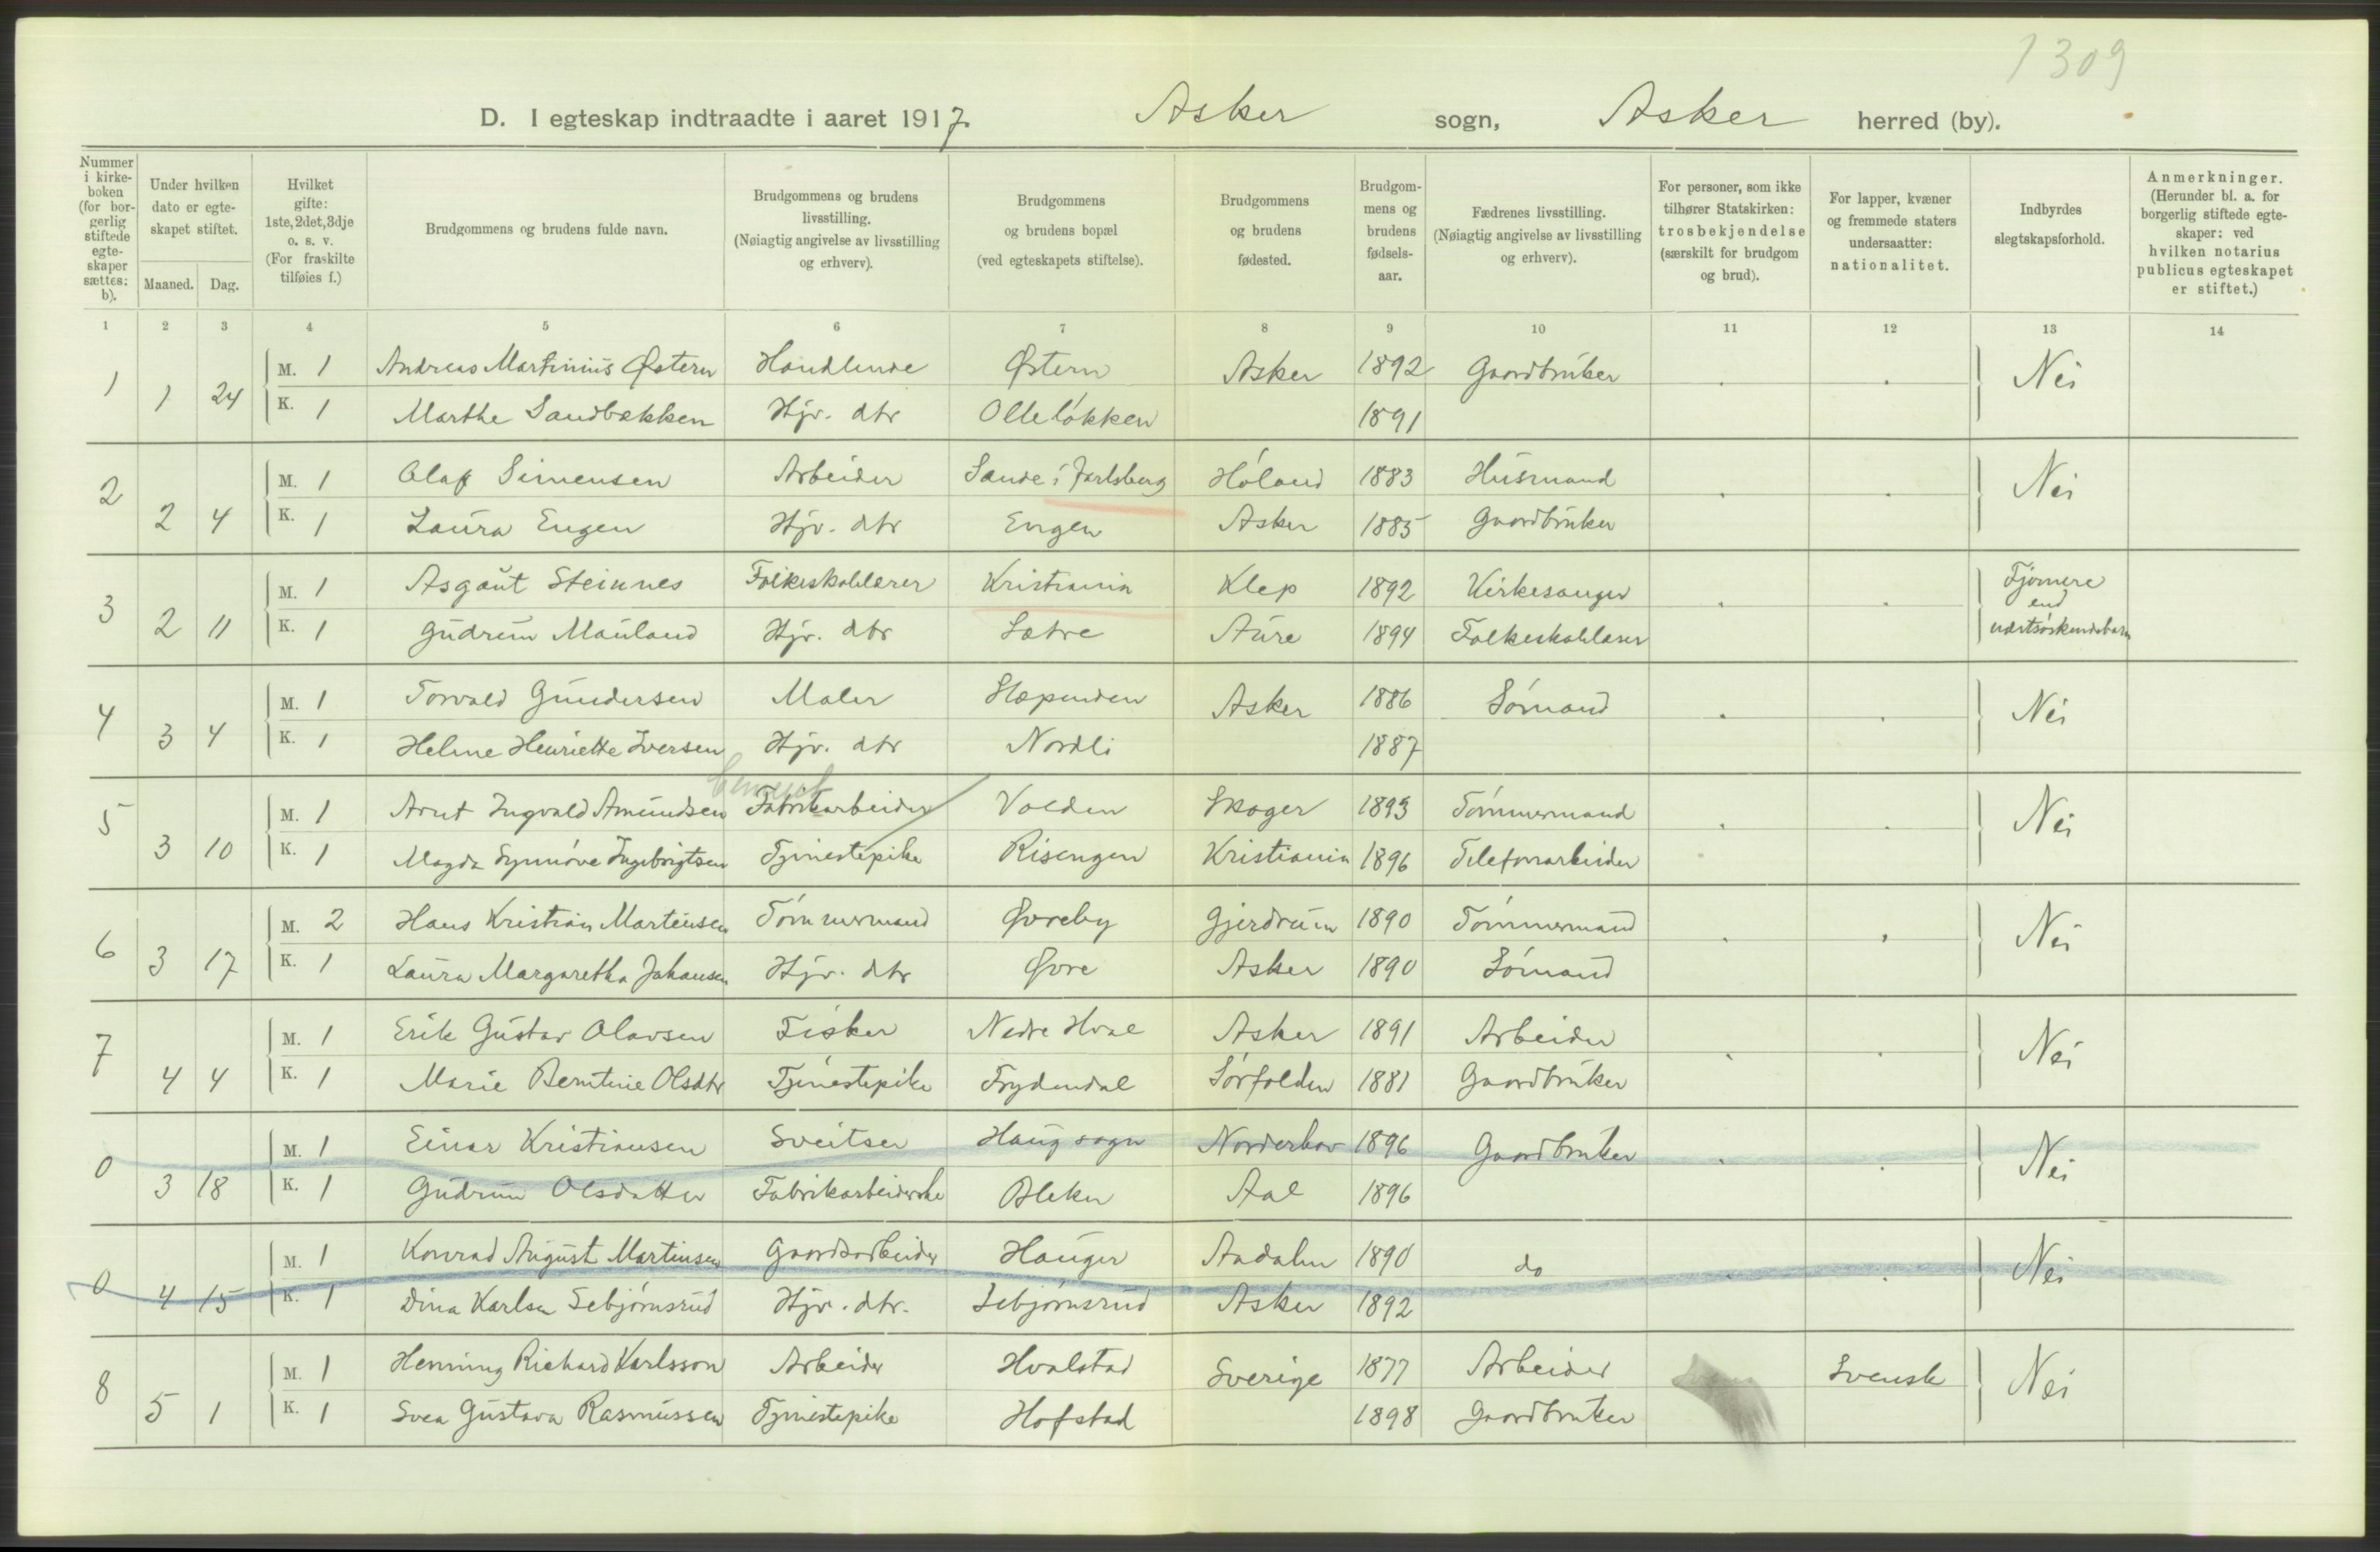 1309
D. I egteskap indtraadte i aaret 1917. Asker sogn, Asker herred (by).
Nummer i kirke-boken (for bor-gerlig stiftede egte-skaper sættes: b).
Under hvilken dato er egte-skapet stiftet.
Maaned. Dag.
Hvilket gifte: 1ste, 2det, 3dje o. s. v. (For fraskilte tilføies f.)
Brudgommens og brudens fulde navn.
Brudgommens og brudens livsstilling. (Nøiagtig angivelse av livsstilling og erhverv).
Brudgommens og brudens bopæl (ved egteskapets stiftelse).
Brudgommens og brudens fødested.
Brudgom-mens og brudens fødsels-aar.
Fædrenes livsstilling. (Nøiagtig angivelse av livsstilling og erhverv).
For personer, som ikke tilhører Statskirken: trosbekjendelse (særskilt for brudgom og brud).
For lapper, kvæner og fremmede staters undersaatter: nationalitet.
Indbyrdes slegtskapsforhold.
Anmerkninger. (Herunder bl. a. for borgerlig stiftede egte-skaper: ved hvilken notarius publicus egteskapet er stiftet.)
1 2 3 4 5 6 7 8 9 10 11 12 13 14
1 1 24 M. 1 Andreas Martinius Østern Handlende Østern Asker 1892 Gaardbruker . . Nei
K. 1 Marthe Sandbækken Hjv. dtr Olleløkken 1891
2 2 4 M. 1 Olaf Simensen Arbeider Sande i Jarlsberg Høland 1883 Husmand . . Nei
K. 1 Laura Engen Hjv. dtr Engen Asker 1885 Gaardbruker
3 2 11 M. 1 Asgaut Steinnes Folkeskolelærer Kristiania Klep 1892 Kirkesanger . . Fjernere end næstsøskendebarn
K. 1 Gudrun Mauland Hjv. dtr Sætre Aure 1894 Folkeskolelærer
4 3 4 M. 1 Torvald Gundersen Maler Slæpenden Asker 1886 Sømand . . Nei
K. 1 Helene Henriette Iversen Hjv. dtr Nordli 1887
Cement
5 3 10 M. 1 Arnt Ingvald Amundsen Fabrikarbeider Volden Skoger 1893 Tømmermand . . Nei
K. 1 Magda Synnøve Ingebrigtsen Tjenestepike Risengen Kristiania 1896 Telefonarbeider
6 3 17 M. 2 Hans Kristian Martinsen Tømmermand Øvreby Gjerdrum 1890 Tømmermand . . Nei
K. 1 Laura Margaretha Johansen Hjv. dtr Øvre Asker 1890 Sømand
7 4 4 M. 1 Erik Gustav Olavsen Fisker Nedre Hval Asker 1891 Arbeider . . Nei
K. 1 Marie Berntine Olsdtr Tjenestepike Frydendal Sørfolden 1881 Gaardbruker
0 3 18 M. 1 Einar Kristiansen Sveitser Haug sogn Norderhov 1896 Gaardbruker . . Nei
K. 1 Gudrun Olsdatter Fabrikarbeiderske Bleker Aal 1896
0 4 15 M. 1 Konrad August Martinsen Gaardsarbeider Hauger Aadalen 1890 do . . Nei
K. 1 Dina Karlsen Sebjørnsrud Hjv. dtr. Sebjørnsrud Asker 1892
8 5 1 M. 1 Henning Richard Karlsson Arbeider Hvalstad Sverige 1877 Arbeider Svensk Nei
K. 1 Svea Gustava Rasmussen Tjenestepike Hofstad 1898 Gaardbruker